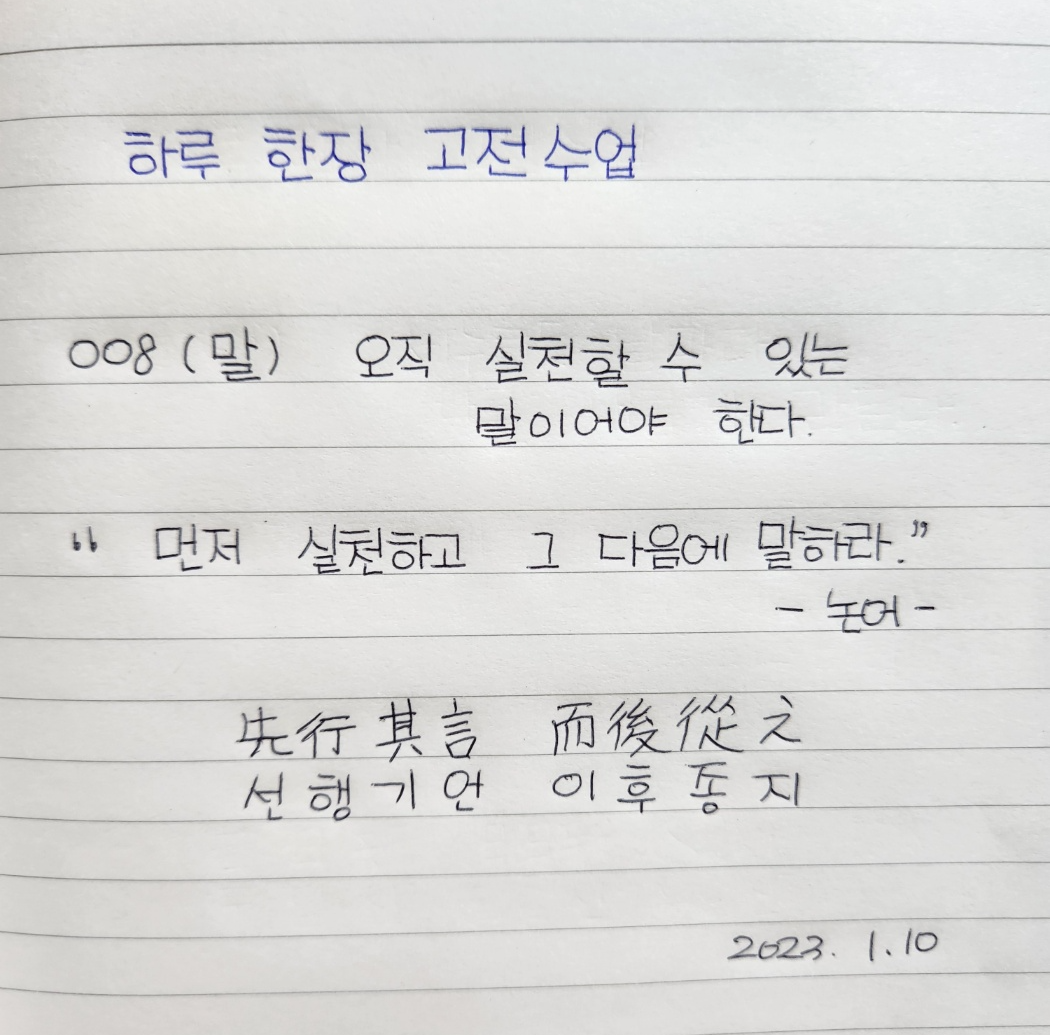 하루 한장 고전수업
008 (말) 오직 실천할 수 있는
말이어야 한다.
“ 먼저 실천하고 그 다음에 말하라.”
- 논어 -
先行其言 而後從之
선행기언 이후종지
2023. 1. 10